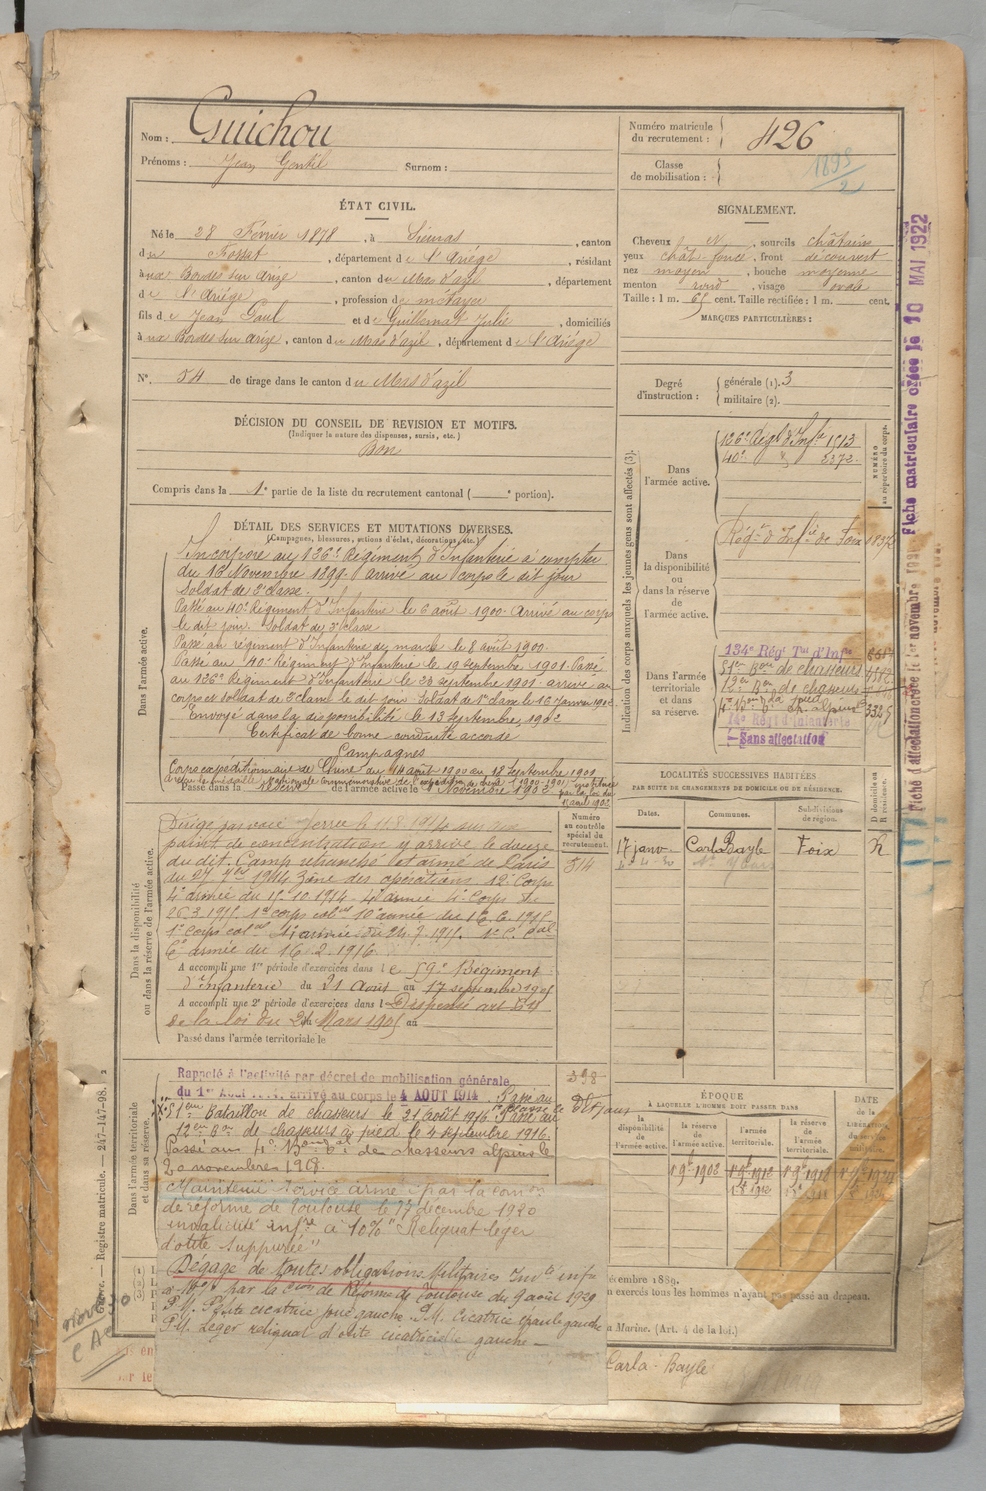 Nom : Guichou
Prénoms : Jean Gentil Surnom :
Numéro matricule du recrutement : 426
Classe de mobilisation : 1895/2
ÉTAT CIVIL.
Né le 28 Février 1878, à Sieuras, canton
du Fossat, département de l'Ariége, résidant
à aux Bordes sur Arize, canton du Mas d'azil, département
de l'Ariége, profession de métayer
fils de Jean Paul et de Guillemat Julie, domiciliés
à aux Bordes sur Arize, canton du Mas d'azil, département de l'Ariége
N°. 54 de tirage dans le canton du Mas d'azil
SIGNALEMENT.
Cheveux et sourcils châtains
yeux chât. foncé, front découvert
nez moyen, bouche moyenne
menton rond, visage ovale
Taille : 1 m. 65 cent. Taille rectifiée : 1 m. cent.
MARQUES PARTICULIÈRES :
Degré d'instruction : générale (1). 3
militaire (2).
DÉCISION DU CONSEIL DE REVISION ET MOTIFS.
(Indiquer la nature des dispenses, sursis, etc.)
Bon
Compris dans la 1e partie de la liste du recrutement cantonal ( e portion).
DÉTAIL DES SERVICES ET MUTATIONS DIVERSES.
(Campagnes, blessures, actions d'éclat, décorations, etc.)
Dans l'armée active.
Incorporé au 126e Régiment d'Infanterie à compter
du 16 Novembre 1899. arrivé au corps le dit jour
Soldat de 2e classe.
Passé au 40e Régiment d'Infanterie le 6 août 1900. Arrivé au corps
le dit jour. Soldat de 2e classe
Passé au régiment d'Infanterie de marche le 8 août 1900.
Passé au 40e Régiment d'Infanterie le 19 septembre 1901. Passé
au 126e Régiment d'Infanterie le 23 septembre 1901. arrivé au
corps et soldat de 2e classe le dit jour. Soldat de 1re classe le 16 Janvier 1902.
Envoyé dans la disponibilité le 13 Septembre 1902
Certificat de bonne conduite accordé
Campagnes
Corps expéditionnaire de Chine du 14 août 1900 au 18 Septembre 1901
Passé dans la réserve de l'armée active le 1 Novembre 1902
Indication des corps auxquels les jeunes gens sont affectés (3).
NUMÉRO au répertoire du corps.
Dans l'armée active.
126e Régt d'Infie 1513
40e 2372
Dans la disponibilité ou dans la réserve de l'armée active.
Régt d'Infie de Foix
Dans l'armée territoriale et dans sa réserve.
134e Régt Tal d'Infie
51e Bon de chasseurs
12e Bon de chasseurs
14e Régt d'Infanterie
Sans affectation
LOCALITÉS SUCCESSIVES HABITÉES
PAR SUITE DE CHANGEMENTS DE DOMICILE OU DE RÉSIDENCE.
Dates. Communes. Subdivisions de région. Domicile ou Résidence.
17 janv. Carla Bayle Foix R
Numéro au contrôle spécial du recrutement.
314
Dans la disponibilité ou dans la réserve de l'armée active.
Dirigé par voie ferrée le 11.8.1914 sur son
point de concentration y arrivé le douze
du dit. Camp retranché et armé de Paris
du 27 7bre 1914 Zone des opérations 12e Corps
4e armée du 15.10.1914. 4e armée 4e Corps
26.3.1915. 1er corps colal 10e année du 16.6.1915
6e armée du 16.2.1916
A accompli une 1re période d'exercices dans le 59e Régiment
d'Infanterie du 21 Août au 17 septembre 1905
A accompli une 2e période d'exercices dans l Dispensé art
de la loi du 21 Mars 1905 au
Passé dans l'armée territoriale le
Dans l'armée territoriale et dans sa réserve.
Rappelé à l'activité par décret de mobilisation générale
du 1er Août arrivé au corps le 4 AOUT 1914. Passé au
51eme Bataillon de chasseurs le 21 août 1916. Passé au
12eme Bon de chasseurs à pied le 4 septembre 1916.
Passé au de chasseurs alpins le
20 novembre 1918.
398
Maintenu service armé par la comon
de réforme de Toulouse le 17 décembre 1920
invalidité infre à 10% "Reliquat léger
d'otite suppurée"
Dégagé de toutes obligations Militaires Invté infre
à 10% par la Cion de Réforme de Toulouse du 9 août 1929
P.M. Petite cicatrice joue gauche. P.M. Cicatrice épaule gauche
P.M. Léger reliquat d'otite cicatricielle gauche —
ÉPOQUE
À LAQUELLE L'HOMME DOIT PASSER DANS
la disponibilité de l'armée active. la réserve de l'armée active. l'armée territoriale. la réserve de l'armée territoriale.
DATE de la LIBÉRATION du service militaire.
1 9bre 1902 1 9bre 1912 1 9bre 1918 1 9bre 1924
décembre 1889.
passé au drapeau.
Marine. (Art. 4 de la loi.)
Carla-Bayle
Registre matricule. — 247-147-98.
Fiche matriculaire créée le 10 MAI 1922